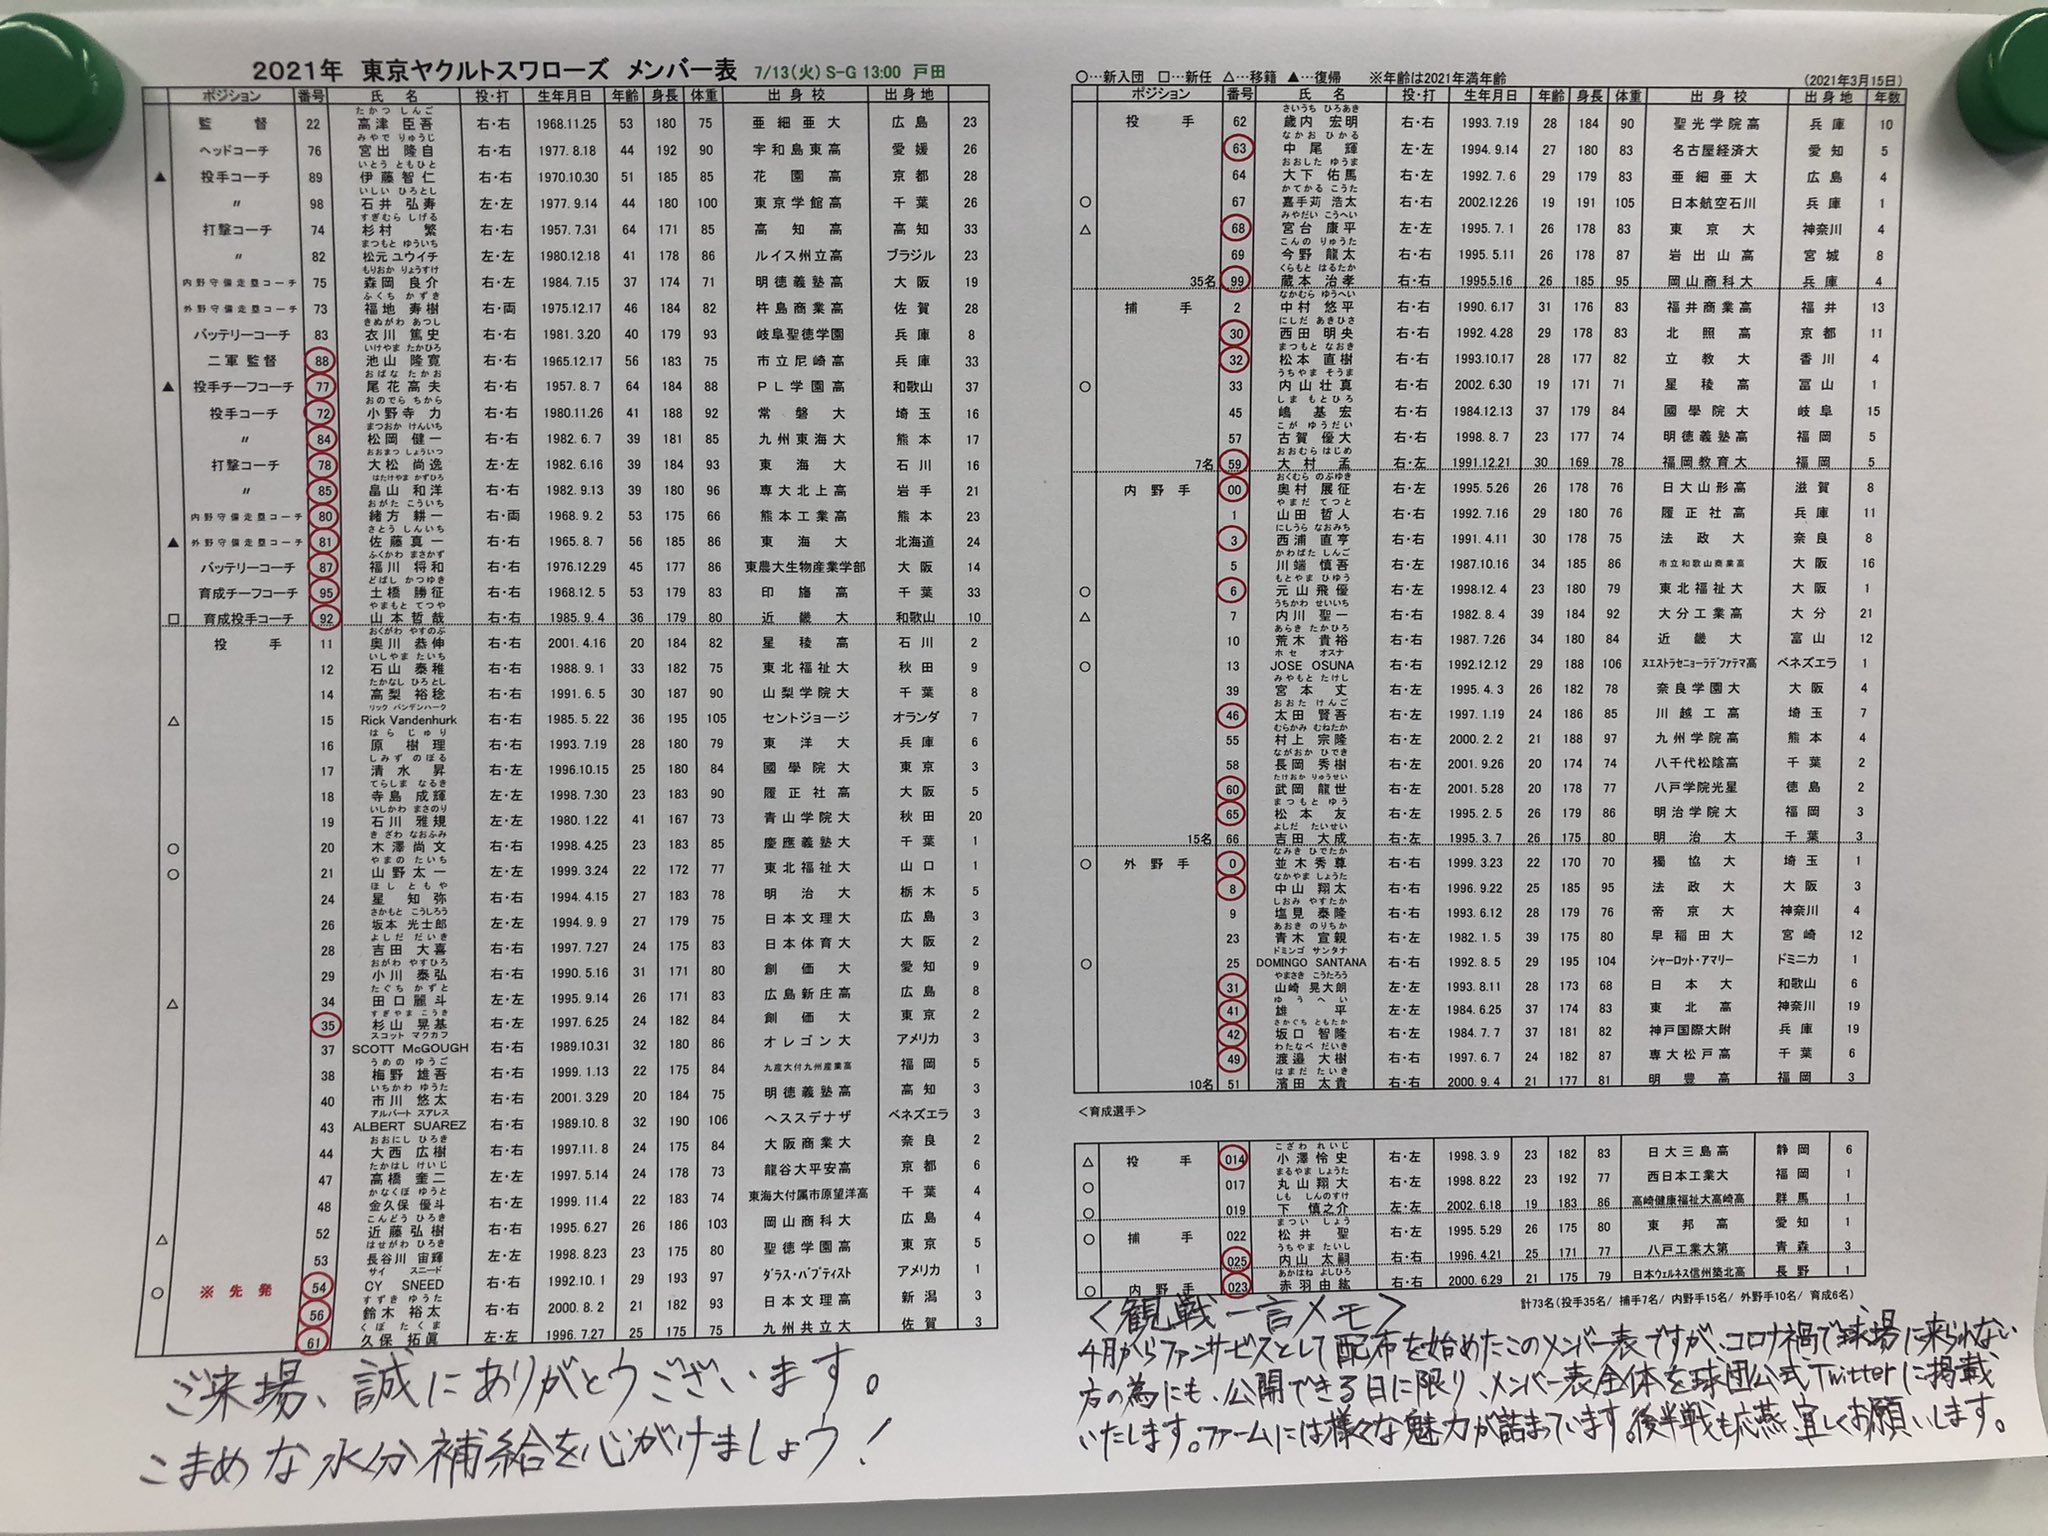 2021年 東京ヤクルトスワローズ メンバー表 7/13(火) S-G 13:00 戸田
ポジション 番号 氏名 投・打 生年月日 年齢 身長 体重 出身校 出身地
たかつ しんご
監督 22 高津 臣吾 右・右 1968.11.25 53 180 75 亜細亜大 広島 23
みやで りゅうじ
ヘッドコーチ 76 宮出 隆自 右・右 1977.8.18 44 192 90 宇和島東高 愛媛 26
いとう ともひと
▲ 投手コーチ 89 伊藤 智仁 右・右 1970.10.30 51 185 85 花園高 京都 28
いしい ひろとし
〃 98 石井 弘寿 左・左 1977.9.14 44 180 100 東京学館高 千葉 26
すぎむら しげる
打撃コーチ 74 杉村 繁 右・右 1957.7.31 64 171 85 高知高 高知 33
まつもと ゆういち
〃 82 松元 ユウイチ 左・左 1980.12.18 41 178 86 ルイス州立高 ブラジル 23
もりおか りょうすけ
内野守備走塁コーチ 75 森岡 良介 右・左 1984.7.15 37 174 71 明徳義塾高 大阪 19
ふくち かずき
外野守備走塁コーチ 73 福地 寿樹 右・両 1975.12.17 46 184 82 杵島商業高 佐賀 28
きぬがわ あつし
バッテリーコーチ 83 衣川 篤史 右・右 1981.3.20 40 179 93 岐阜聖徳学園 兵庫 8
いけやま たかひろ
二軍監督 88 池山 隆寛 右・右 1965.12.17 56 183 75 市立尼崎高 兵庫 33
おばな たかお
▲ 投手チーフコーチ 77 尾花 高夫 右・右 1957.8.7 64 184 88 PL学園高 和歌山 37
おのでら ちから
投手コーチ 72 小野寺 力 右・右 1980.11.26 41 188 92 常磐大 埼玉 16
まつおか けんいち
〃 84 松岡 健一 右・右 1982.6.7 39 181 85 九州東海大 熊本 17
おおまつ しょういつ
打撃コーチ 78 大松 尚逸 左・左 1982.6.16 39 184 93 東海大 石川 16
はたけやま かずひろ
〃 85 畠山 和洋 右・右 1982.9.13 39 180 96 専大北上高 岩手 21
おがた こういち
内野守備走塁コーチ 80 緒方 耕一 右・両 1968.9.2 53 175 66 熊本工業高 熊本 23
さとう しんいち
▲ 外野守備走塁コーチ 81 佐藤 真一 右・右 1965.8.7 56 185 86 東海大 北海道 24
ふくかわ まさかず
バッテリーコーチ 87 福川 将和 右・右 1976.12.29 45 177 86 東農大生物産業学部 大阪 14
どばし かつゆき
育成チーフコーチ 95 土橋 勝征 右・右 1968.12.5 53 179 83 印旛高 千葉 33
やまもと てつや
□ 育成投手コーチ 92 山本 哲哉 右・右 1985.9.4 36 179 80 近畿大 和歌山 10
おくがわ やすのぶ
投手 11 奥川 恭伸 右・右 2001.4.16 20 184 82 星稜高 石川 2
いしやま たいち
12 石山 泰稚 右・右 1988.9.1 33 182 75 東北福祉大 秋田 9
たかなし ひろとし
14 高梨 裕稔 右・右 1991.6.5 30 187 90 山梨学院大 千葉 8
リック バンデンハーク
△ 15 Rick Vandenhurk 右・右 1985.5.22 36 195 105 セントジョージ オランダ 7
はら じゅり
16 原 樹理 右・右 1993.7.19 28 180 79 東洋大 兵庫 6
しみず のぼる
17 清水 昇 右・左 1996.10.15 25 180 84 國學院大 東京 3
てらしま なるき
18 寺島 成輝 左・左 1998.7.30 23 183 90 履正社高 大阪 5
いしかわ まさのり
19 石川 雅規 左・左 1980.1.22 41 167 73 青山学院大 秋田 20
きざわ なおふみ
○ 20 木澤 尚文 右・右 1998.4.25 23 183 85 慶應義塾大 千葉 1
やまの たいち
○ 21 山野 太一 左・左 1999.3.24 22 172 77 東北福祉大 山口 1
ほし ともや
24 星 知弥 右・右 1994.4.15 27 183 78 明治大 栃木 5
さかもと こうしろう
26 坂本 光士郎 左・左 1994.9.9 27 179 75 日本文理大 広島 3
よしだ だいき
28 吉田 大喜 右・右 1997.7.27 24 175 83 日本体育大 大阪 2
おがわ やすひろ
29 小川 泰弘 右・右 1990.5.16 31 171 80 創価大 愛知 9
たぐち かずと
△ 34 田口 麗斗 左・左 1995.9.14 26 171 83 広島新庄高 広島 8
すぎやま こうき
35 杉山 晃基 右・左 1997.6.25 24 182 84 創価大 東京 2
スコット マクガフ
37 SCOTT McGOUGH 右・右 1989.10.31 32 180 86 オレゴン大 アメリカ 3
うめの ゆうご
38 梅野 雄吾 右・右 1999.1.13 22 175 84 九産大付九州産業高 福岡 5
いちかわ ゆうた
40 市川 悠太 右・右 2001.3.29 20 184 75 明徳義塾高 高知 3
アルバート スアレス
43 ALBERT SUAREZ 右・右 1989.10.8 32 190 106 ヘススデナザ ベネズエラ 3
おおにし ひろき
44 大西 広樹 右・右 1997.11.8 24 175 84 大阪商業大 奈良 2
たかはし けいじ
47 高橋 奎二 左・左 1997.5.14 24 178 73 龍谷大平安高 京都 6
かなくぼ ゆうと
48 金久保 優斗 右・左 1999.11.4 22 183 74 東海大付属市原望洋高 千葉 4
こんどう ひろき
△ 52 近藤 弘樹 右・右 1995.6.27 26 186 103 岡山商科大 広島 4
はせがわ ひろき
53 長谷川 宙輝 左・左 1998.8.23 23 175 80 聖徳学園高 東京 5
サイ スニード
○ ※先発 54 CY SNEED 右・右 1992.10.1 29 193 97 ダラス・バプティスト アメリカ 1
すずき ゆうた
56 鈴木 裕太 右・右 2000.8.2 21 182 93 日本文理高 新潟 3
くぼ たくま
61 久保 拓眞 左・左 1996.7.27 25 175 75 九州共立大 佐賀 3
ご来場、誠にありがとうございます。
こまめな水分補給を心がけましょう!
○…新入団 □…新任 △…移籍 ▲…復帰 ※年齢は2021年満年齢 (2021年3月15日)
ポジション 番号 氏名 投・打 生年月日 年齢 身長 体重 出身校 出身地 年数
さいうち ひろあき
投手 62 歳内 宏明 右・右 1993.7.19 28 184 90 聖光学院高 兵庫 10
なかお ひかる
63 中尾 輝 左・左 1994.9.14 27 180 83 名古屋経済大 愛知 5
おおした ゆうま
64 大下 佑馬 右・左 1992.7.6 29 179 83 亜細亜大 広島 4
かてかる こうた
○ 67 嘉手苅 浩太 右・右 2002.12.26 19 191 105 日本航空石川 兵庫 1
みやだい こうへい
△ 68 宮台 康平 左・左 1995.7.1 26 178 83 東京大 神奈川 4
こんの りゅうた
69 今野 龍太 右・右 1995.5.11 26 178 87 岩出山高 宮城 8
くらもと はるたか
35名 99 蔵本 治孝 右・右 1995.5.16 26 185 95 岡山商科大 兵庫 4
なかむら ゆうへい
捕手 2 中村 悠平 右・右 1990.6.17 31 176 83 福井商業高 福井 13
にしだ あきひさ
30 西田 明央 右・右 1992.4.28 29 178 83 北照高 京都 11
まつもと なおき
32 松本 直樹 右・右 1993.10.17 28 177 82 立教大 香川 4
うちやま そうま
○ 33 内山 壮真 右・右 2002.6.30 19 171 71 星稜高 富山 1
しま もとひろ
45 嶋 基宏 右・右 1984.12.13 37 179 84 國學院大 岐阜 15
こが ゆうだい
57 古賀 優大 右・右 1998.8.7 23 177 74 明徳義塾高 福岡 5
おおむら はじめ
7名 59 大村 孟 右・左 1991.12.21 30 169 78 福岡教育大 福岡 5
おくむら のぶゆき
内野手 00 奥村 展征 右・左 1995.5.26 26 178 76 日大山形高 滋賀 8
やまだ てつと
1 山田 哲人 右・右 1992.7.16 29 180 76 履正社高 兵庫 11
にしうら なおみち
3 西浦 直亨 右・右 1991.4.11 30 178 75 法政大 奈良 8
かわばた しんご
5 川端 慎吾 右・左 1987.10.16 34 185 86 市立和歌山商業高 大阪 16
もとやま ひゆう
○ 6 元山 飛優 右・左 1998.12.4 23 180 79 東北福祉大 大阪 1
うちかわ せいいち
△ 7 内川 聖一 右・右 1982.8.4 39 184 92 大分工業高 大分 21
あらき たかひろ
10 荒木 貴裕 右・右 1987.7.26 34 180 84 近畿大 富山 12
ホセ オスナ
○ 13 JOSE OSUNA 右・右 1992.12.12 29 188 106 ヌエストラセニョーラデファテマ高 ベネズエラ 1
みやもと たけし
39 宮本 丈 右・左 1995.4.3 26 182 78 奈良学園大 大阪 4
おおた けんご
46 太田 賢吾 右・左 1997.1.19 24 186 85 川越工高 埼玉 7
むらかみ むねたか
55 村上 宗隆 右・左 2000.2.2 21 188 97 九州学院高 熊本 4
ながおか ひでき
58 長岡 秀樹 右・左 2001.9.26 20 174 74 八千代松陰高 千葉 2
たけおか りゅうせい
60 武岡 龍世 右・左 2001.5.28 20 178 77 八戸学院光星 徳島 2
まつもと ゆう
65 松本 友 右・左 1995.2.5 26 179 86 明治学院大 福岡 3
よしだ たいせい
15名 66 吉田 大成 右・左 1995.3.7 26 175 80 明治大 千葉 3
なみき ひでたか
○ 外野手 0 並木 秀尊 右・右 1999.3.23 22 170 70 獨協大 埼玉 1
なかやま しょうた
8 中山 翔太 右・右 1996.9.22 25 185 95 法政大 大阪 3
しおみ やすたか
9 塩見 泰隆 右・右 1993.6.12 28 179 76 帝京大 神奈川 4
あおき のりちか
23 青木 宣親 右・左 1982.1.5 39 175 80 早稲田大 宮崎 12
ドミンゴ サンタナ
○ 25 DOMINGO SANTANA 右・右 1992.8.5 29 195 104 シャーロット・アマリー ドミニカ 1
やまさき こうたろう
31 山崎 晃大朗 右・左 1993.8.11 28 173 68 日本大 和歌山 6
ゆうへい
41 雄平 左・左 1984.6.25 37 174 83 東北高 神奈川 19
さかぐち ともたか
42 坂口 智隆 右・左 1984.7.7 37 181 82 神戸国際大附 兵庫 19
わたなべ だいき
49 渡邉 大樹 右・右 1997.6.7 24 182 87 専大松戸高 千葉 6
はまだ たいき
10名 51 濱田 太貴 右・右 2000.9.4 21 177 81 明豊高 福岡 3
<育成選手>
こざわ れいじ
△ 投手 014 小澤 怜史 右・左 1998.3.9 23 182 83 日大三島高 静岡 6
まるやま しょうた
○ 017 丸山 翔大 右・左 1998.8.22 23 192 77 西日本工業大 福岡 1
しも しんのすけ
○ 019 下 慎之介 左・左 2002.6.18 19 183 86 高崎健康福祉大高崎高 群馬 1
まつい しょう
○ 捕手 022 松井 聖 右・左 1995.5.29 26 175 80 東邦高 愛知 1
うちやま たいし
025 内山 太嗣 右・右 1996.4.21 25 171 77 八戸工業大第 青森 3
あかはね よしひろ
○ 内野手 023 赤羽 由紘 右・右 2000.6.29 21 175 79 日本ウェルネス信州築北高 長野 1
計73名(投手35名/ 捕手7名/ 内野手15名/ 外野手10名/ 育成6名)
<観戦一言メモ>
4月からファンサービスとして配布を始めたこのメンバー表ですが、コロナ禍で球場に来られない
方の為にも、公開できる日に限り、メンバー表全体を球団公式Twitterに掲載
いたします。ファームには様々な魅力が詰まっています。後半戦も応燕、宜しくお願いします。